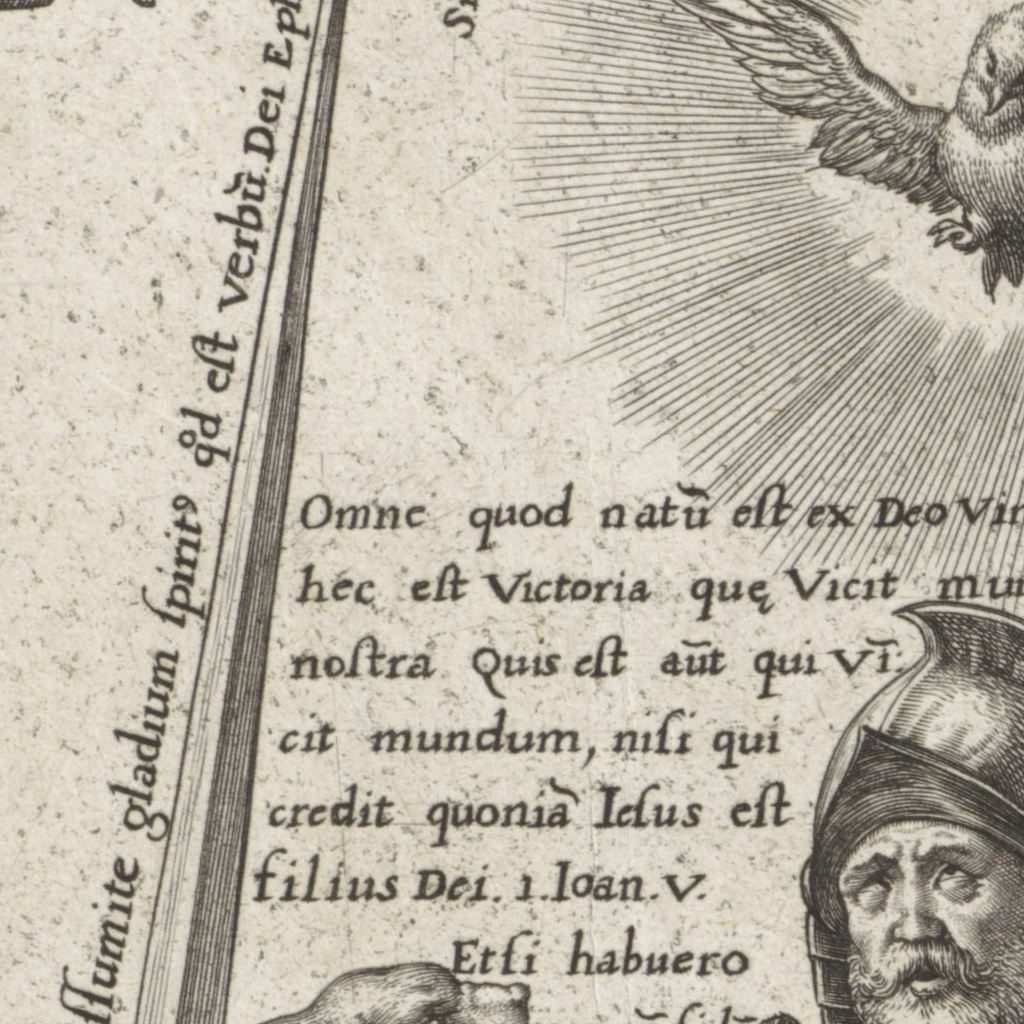 ſſumite gladium ſpiritꝰ qd eſt verbũ Dei Eph
Omne quod natũ eſt ex Deo Vin
hec eſt Victoria quę Vicit mun
noſtra Quis eſt aūt qui vī:
cit mundum, niſi qui
credit quoniã Ieſus eſt
filius Dei. 1. Ioan. V.
Etſi habuero